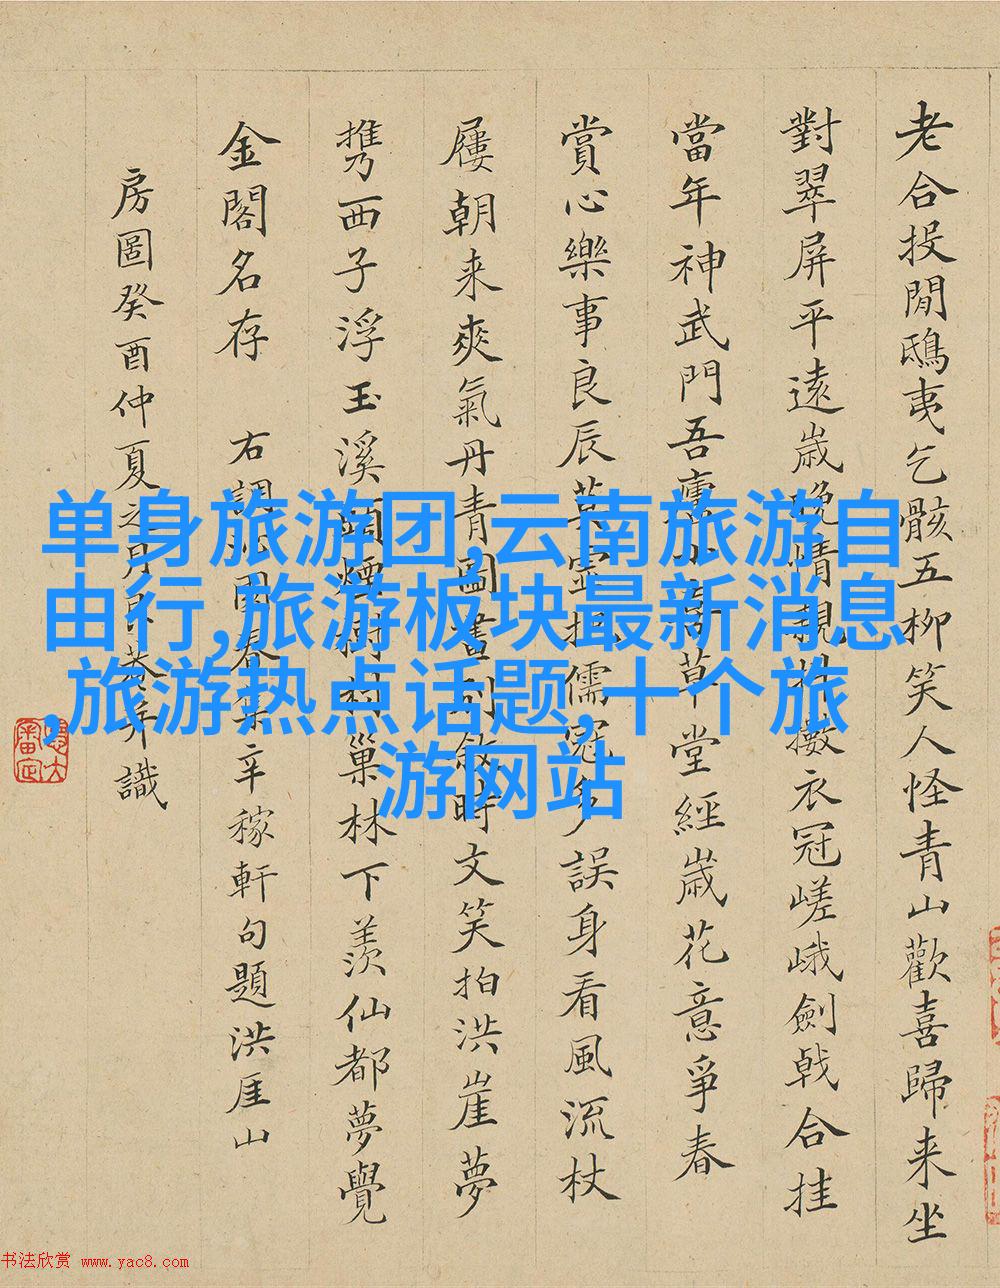 老合投閒鴟夷乞骸五柳笑人怪青山歡喜歸来坐
對翠屏平遠歲晚情親衣冠嵯峨劍戟合挂
當年神武門吾廬小草堂經歲花意爭春
賞心樂事良辰英靈儒冠多誤身看風流杖
屨朝来爽氣丹青圖畫時文笑拍洪崖夢
携西子浮玉溪頭煙樹巢林下羨仙都夢覺
金閣名存 右調沁園春集辛稼軒句題洪厓山
房圖癸酉仲夏之月識
单身旅游团,云南旅游自
由行,旅游板块最新消息
,旅游热点话题,十个旅
游网站
书法欣赏 www.yac8.com